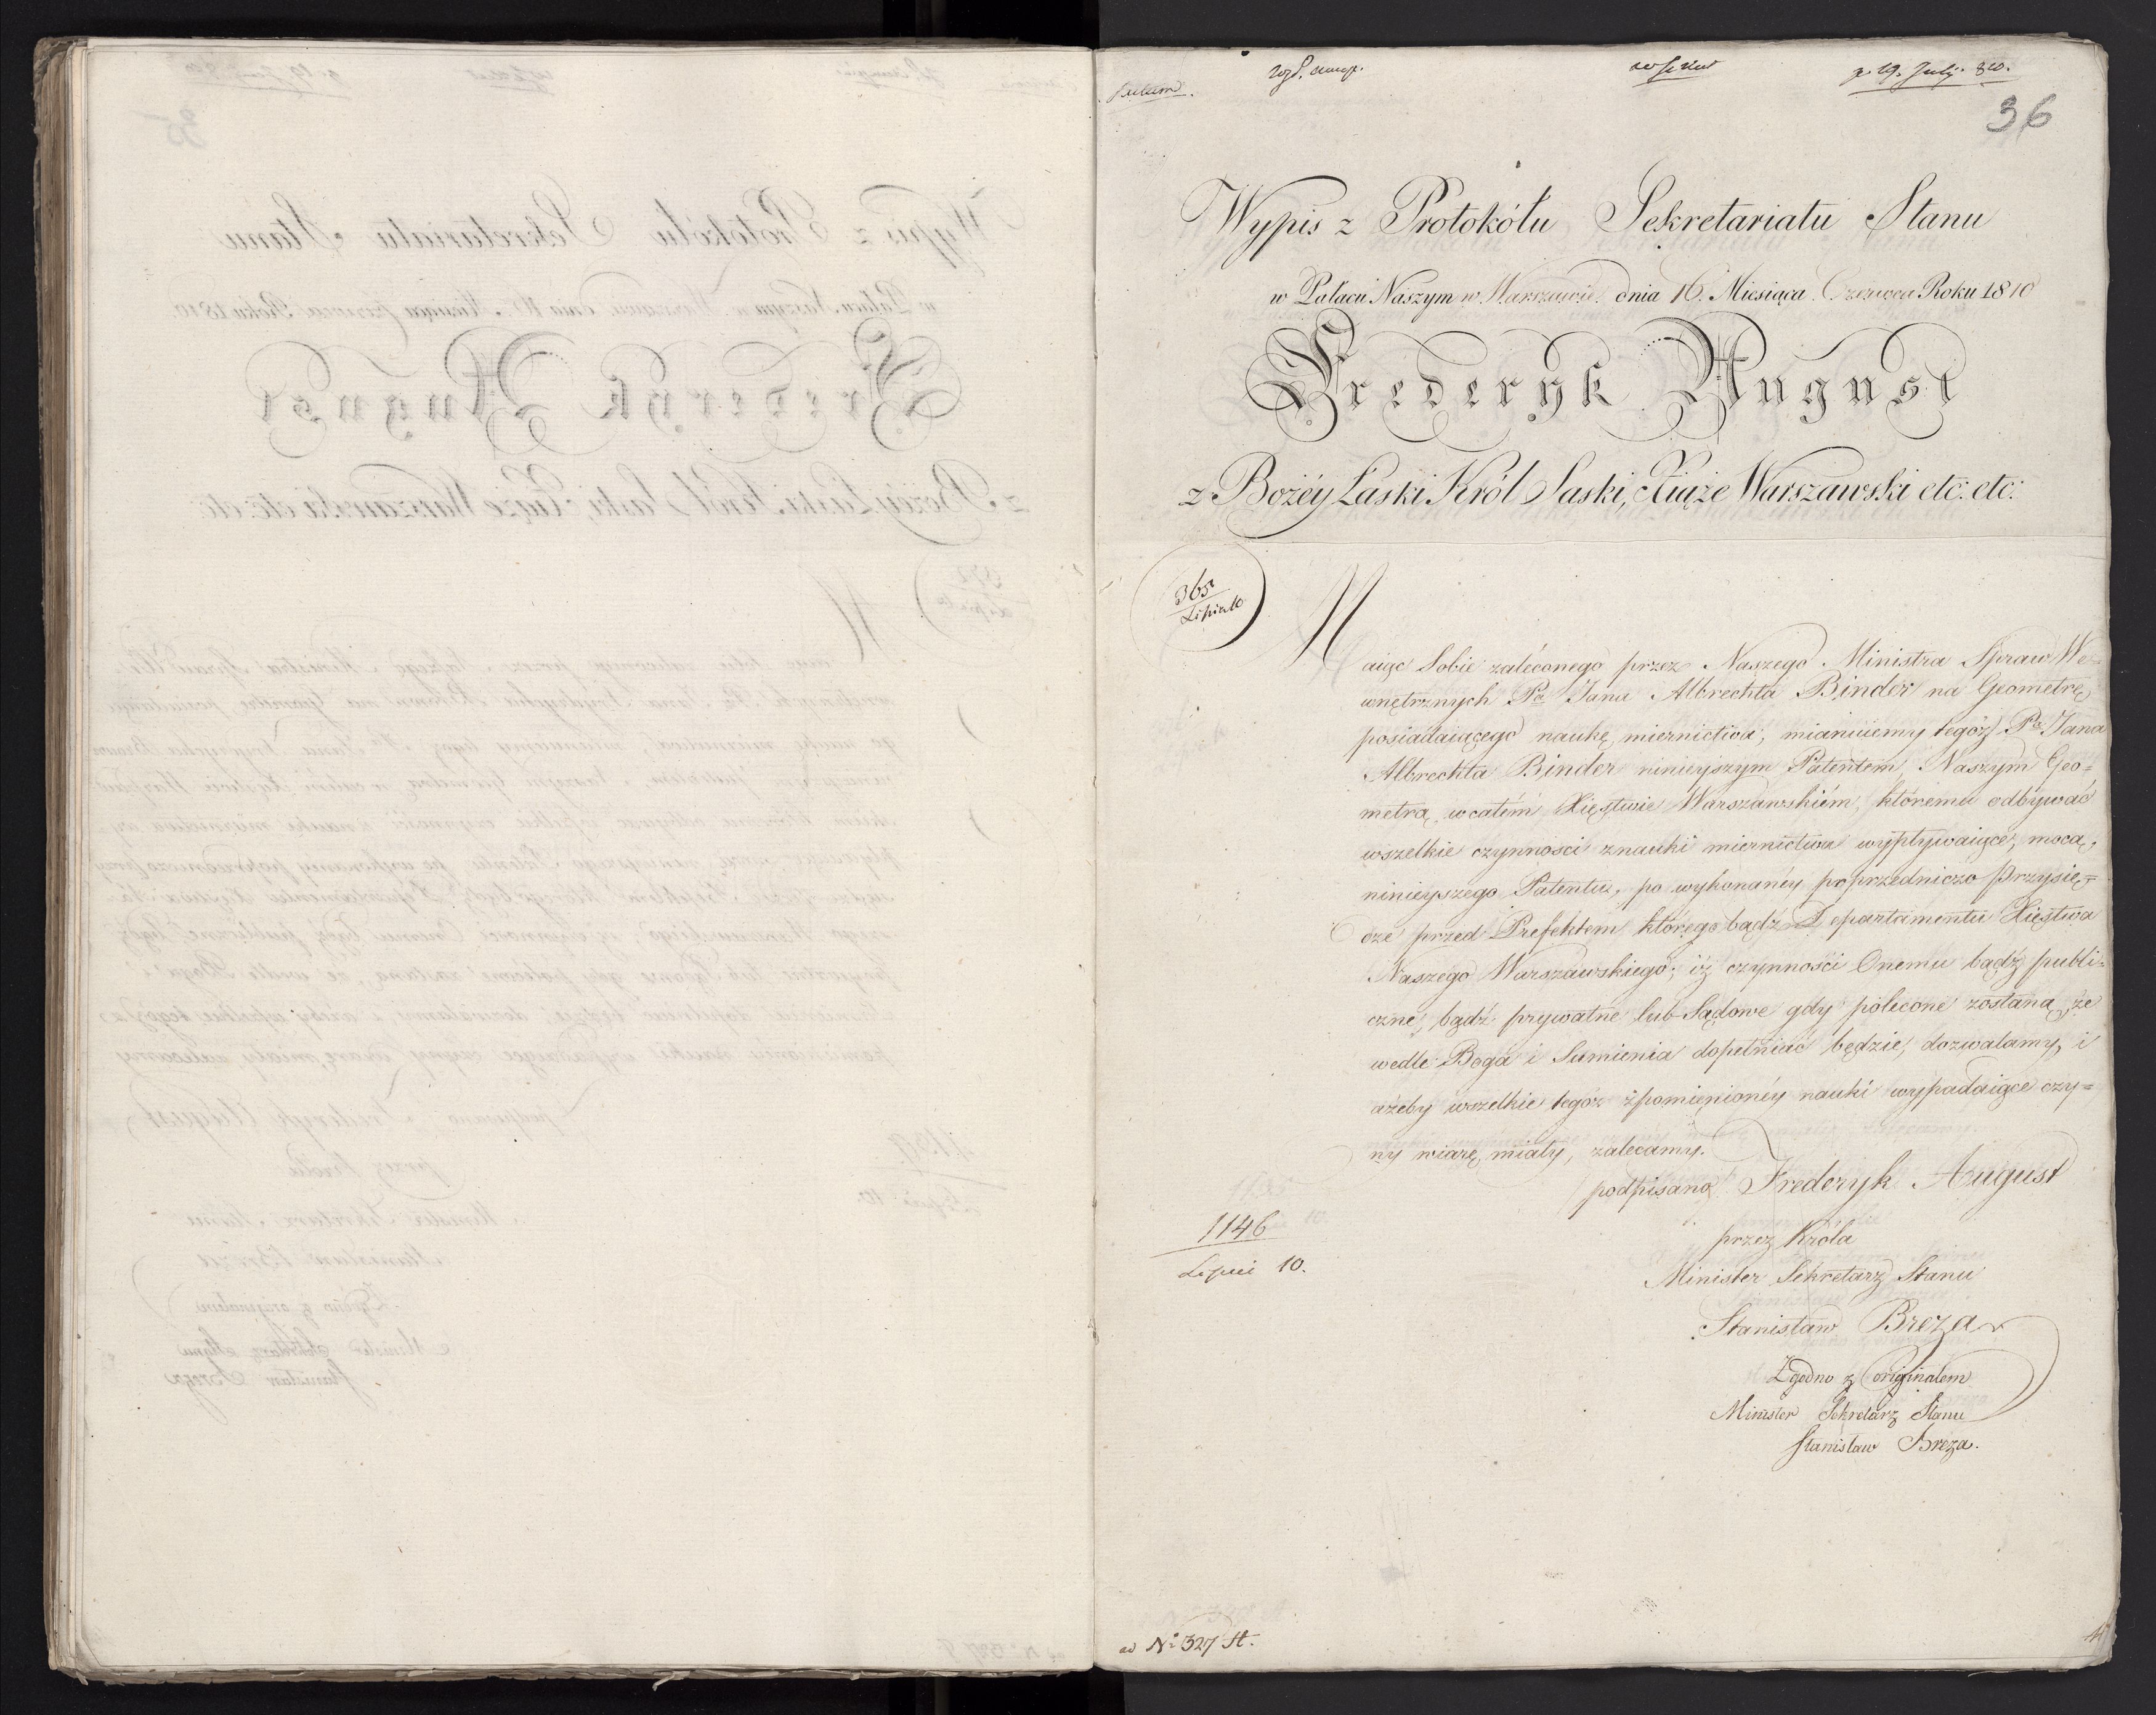 p. 19. Julij. 810.
36
Wypis z Protokółu Sekretariatu Stanu
w Pałacu Naszym w Warszawie dnia 16. Miesiąca Czerwca Roku 1810
Frederyk August
z Bożéy Łaski Król Saski, Xiąże Warszawski etc: etc:
365
Maiąc Sobie zaleconego przez Naszego Ministra Spraw We-
wnętrznych Pa Jana Albrechta Binder na Geometrę
posiadaiącego naukę miernictwa, mianuiemy tegóż Pa Jana
Albrechta Binder ninieyszym Patentem, Naszym Geo=
metrą w całém Xięstwie Warszawskiém, któremu odbywać
wszelkie czynności z nauki miernictwa wypływaiące, mocą
ninieyszego Patentu, po wykonanéy poprzedniczo Przysię=
dze przed Prefektem którego bądź Departamentu Xięstwa
Naszego Warszawskiego, iż czynności Onemu bądź publi=
czne, bądź prywatne lub Sądowe gdy polecone zostaną, że
wedle Boga i Sumienia dopełniać będzie, dozwalamy, i
ażeby wszelkie tegóż z pomienionéy nauki wypadaiące czy=
ny wiarę miały, zalecamy.
podpisano Frederyk August
przez Króla
1146
Lipca 10.
Minister Sekretarz Stanu
Stanisław Breza
Zgodno z Originałem
Minister Sekretarz Stanu
Stanisław Breza.
ad No 327 St.